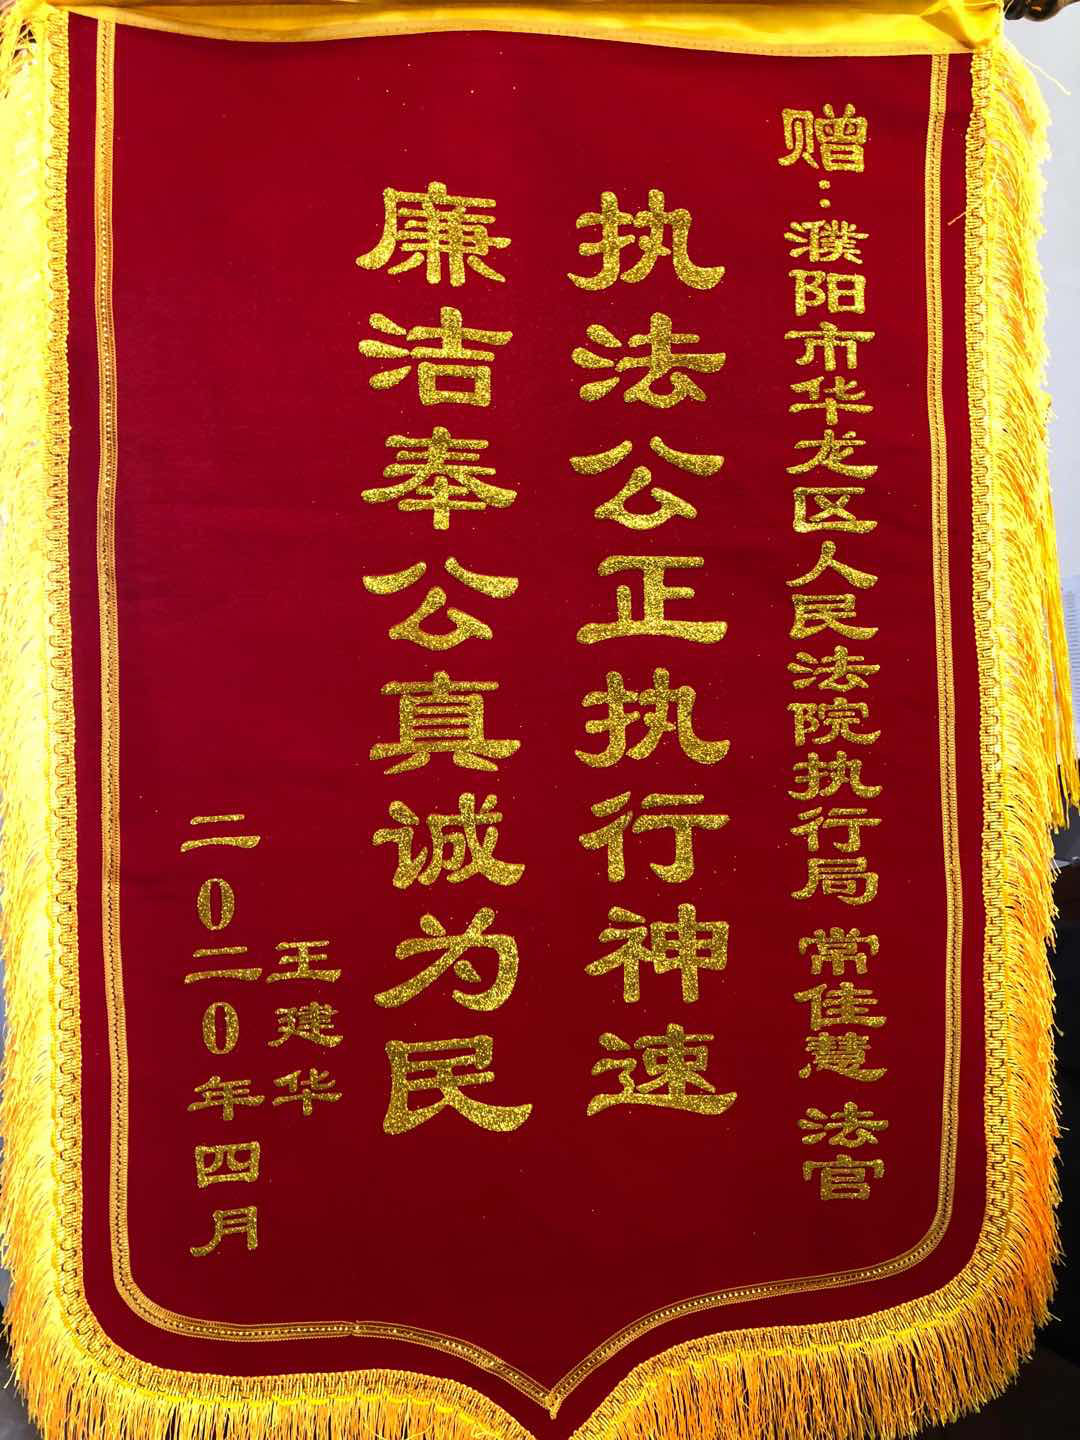 赠：濮阳市华龙区人民法院执行局 常佳慧 法官
执法公正执行神速
廉洁奉公真诚为民
王建华
二0二0年四月